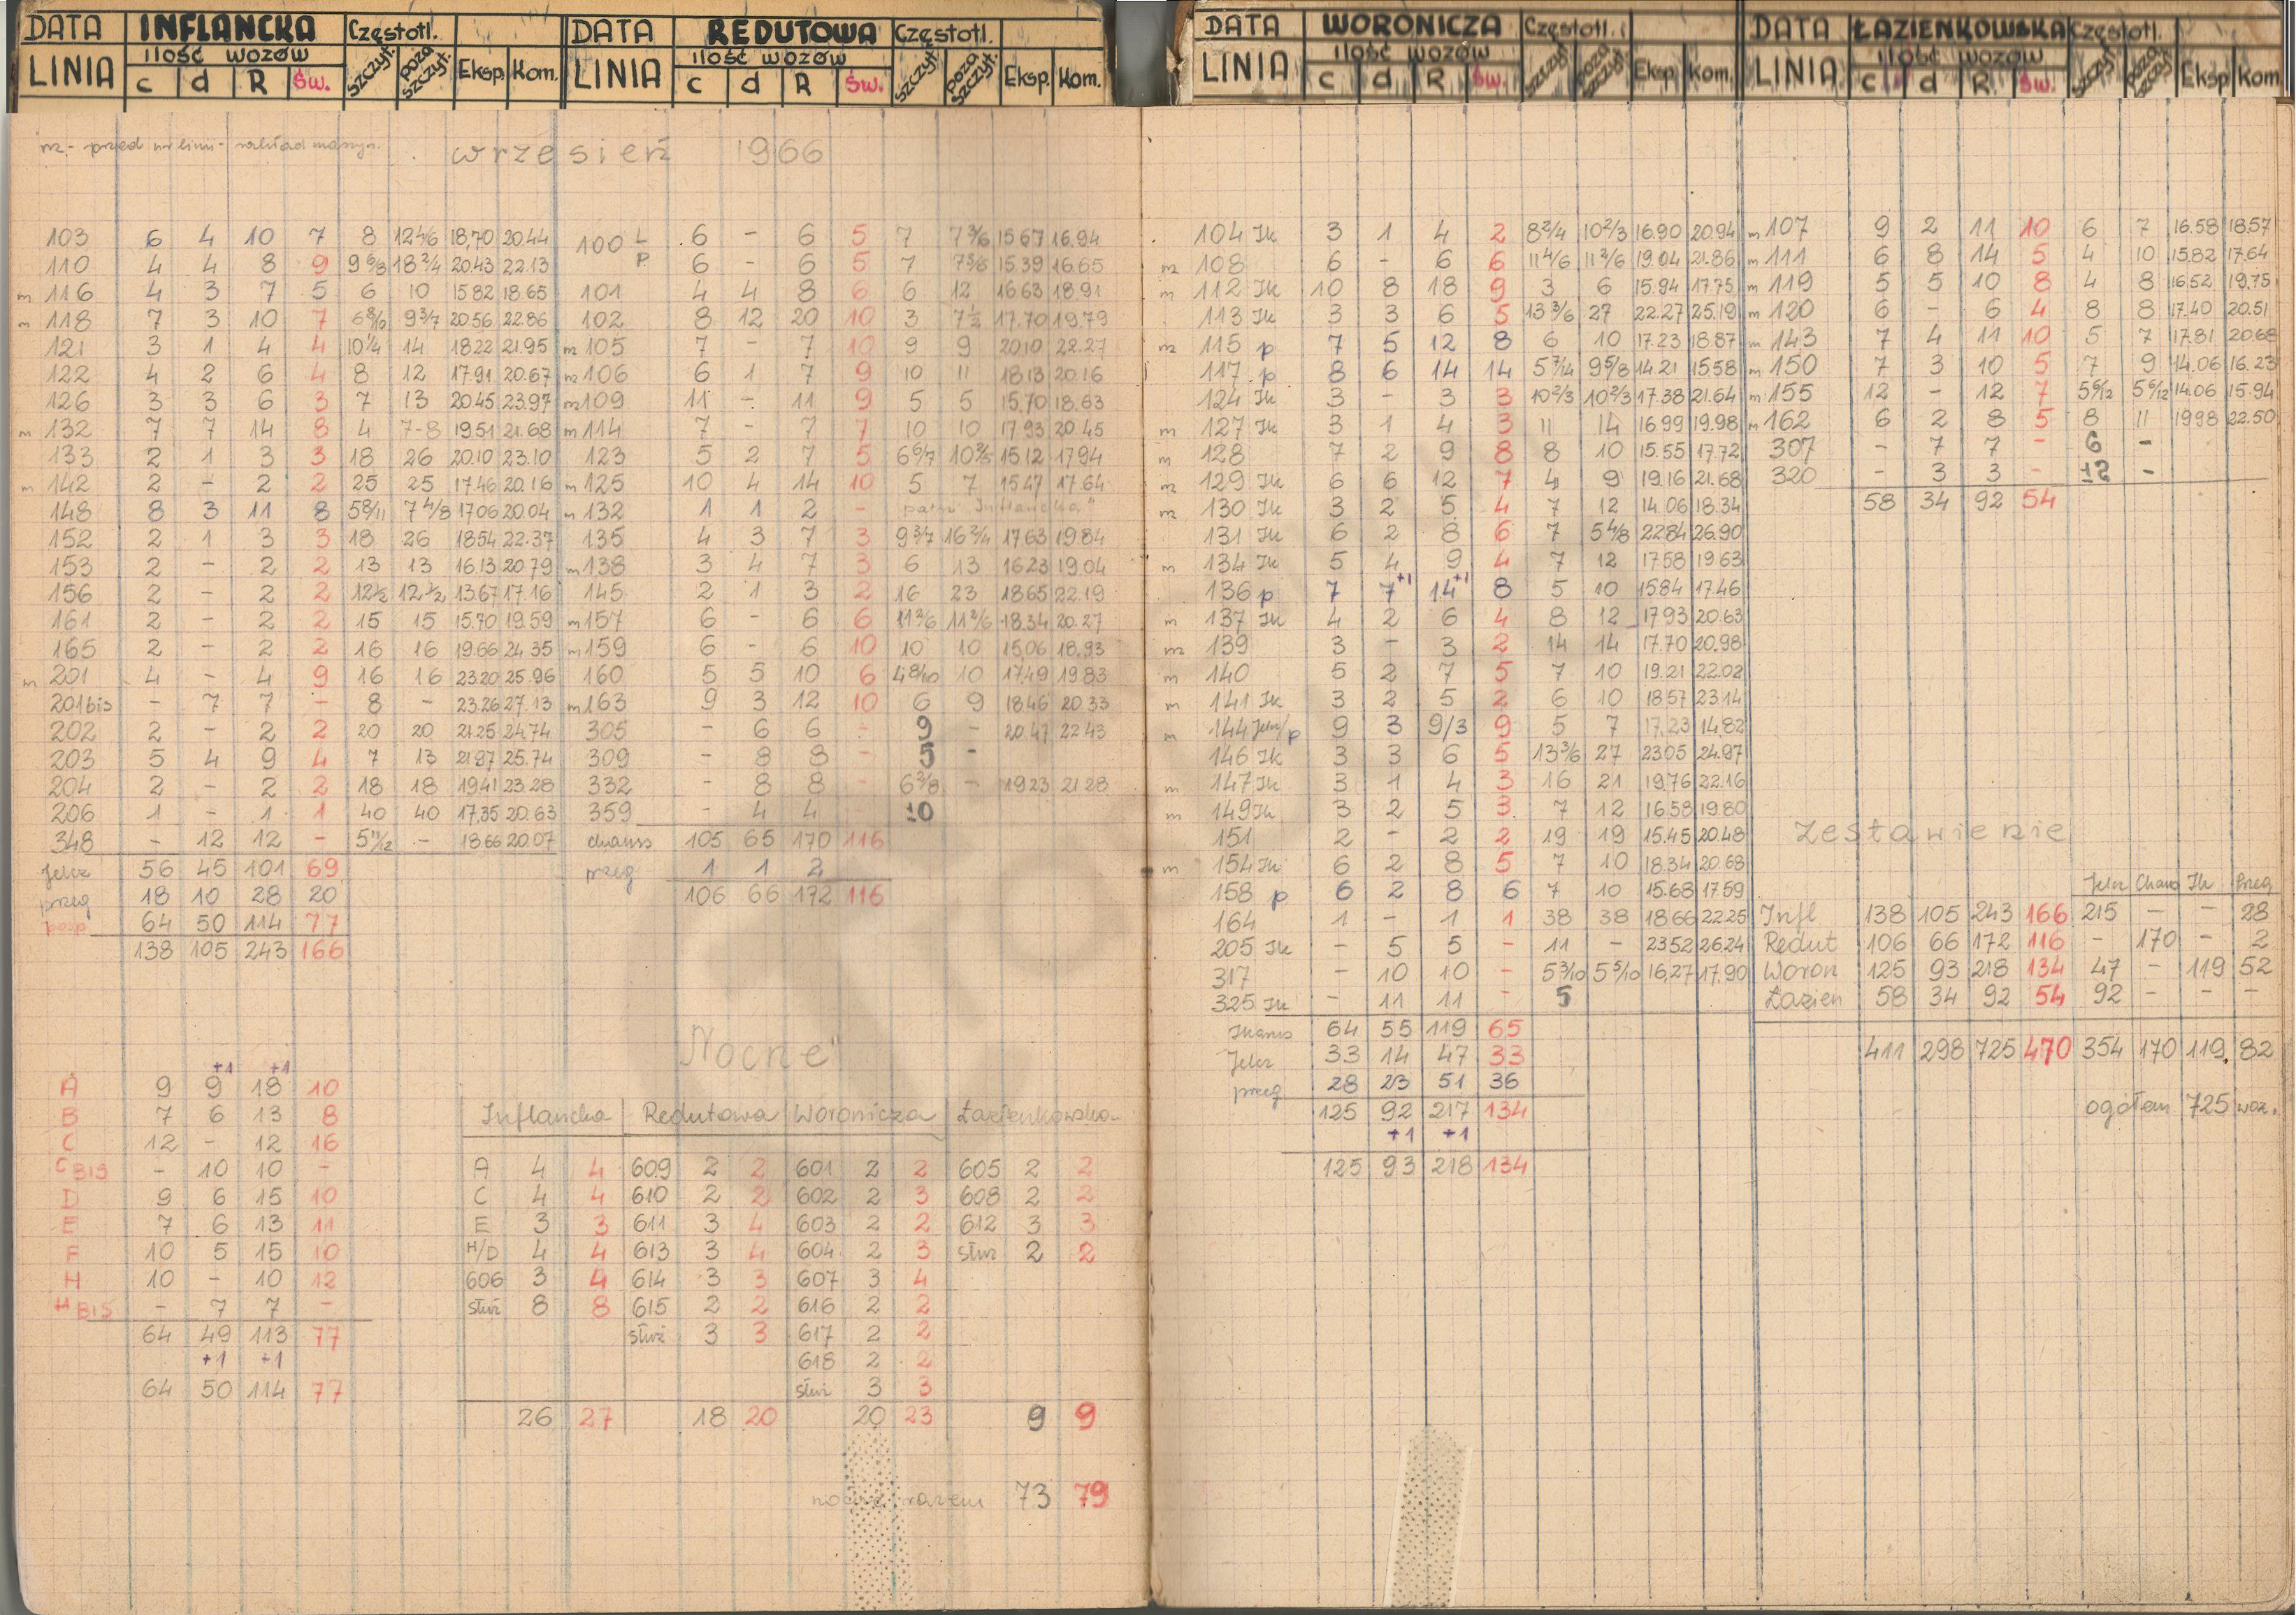 DATA INFLANCKA Częstotl.
LINIA ilość wozów c d R Św. szczyt. poza szczyt. Eksp. Kom.
m - przed nr linii - zakład macyn.
wrzesień 1966
103 6 4 10 7 8 12 4/6 18,70 20.44
110 4 4 8 9 9 6/8 18 2/4 20.43 22.13
m 116 4 3 7 5 6 10 15.82 18.65
m 118 7 3 10 7 6 8/10 9 3/7 20.56 22.86
121 3 1 4 4 10 1/4 14 18.22 21.95
122 4 2 6 4 8 12 17.91 20.67
126 3 3 6 3 7 13 20.45 23.97
m 132 7 7 14 8 4 7-8 19.51 21.68
133 2 1 3 3 18 26 20.10 23.10
m 142 2 - 2 2 25 25 17.46 20.16
148 8 3 11 8 5 8/11 7 4/8 17.06 20.04
152 2 1 3 3 18 26 18.54 22.37
153 2 - 2 2 13 13 16.13 20.79
156 2 - 2 2 12 1/2 12 1/2 13.67 17.16
161 2 - 2 2 15 15 15.70 19.59
165 2 - 2 2 16 16 19.66 24.35
m 201 4 - 4 9 16 16 23.20 25.96
201 bis - 7 7 - 8 - 23.26 27.13
202 2 - 2 2 20 20 21.25 24.74
203 5 4 9 4 7 13 21.97 25.74
204 2 - 2 2 18 18 19.41 23.28
206 1 - 1 1 40 40 17,35 20.63
348 - 12 12 - 5 11/12 - 18.66 20.07
Jelcz 56 45 101 69
przeg 18 10 28 20
posp 64 50 114 77
138 105 243 166
+1 +1
A 9 9 18 10
B 7 6 13 8
C 12 - 12 16
C BIS - 10 10 -
D 9 6 15 10
E 7 6 13 11
F 10 5 15 10
H 10 - 10 12
H BIS - 7 7 -
64 49 113 77
+1 +1
64 50 114 77
DATA REDUTOWA Częstotl.
LINIA ilość wozów c d R Św. szczyt. poza szczyt. Eksp. Kom.
100 L 6 - 6 5 7 7 3/6 15.67 16.94
P. 6 - 6 5 7 7 3/6 15.39 16.65
101 4 4 8 6 6 12 16.63 18.91
102 8 12 20 10 3 7 1/2 17.70 19.79
m 105 7 - 7 10 9 9 20.10 22.27
m 106 6 1 7 9 10 11 18.13 20.16
m 109 11 - 11 9 5 5 15.70 18.63
m 114 7 - 7 7 10 10 17.93 20.45
123 5 2 7 5 6 6/7 10 2/5 15.12 17.94
m 125 10 4 14 10 5 7 15.47 17.64
m 132 1 1 2 - patrz "Inflancka"
135 4 3 7 3 9 3/7 16 2/4 17.63 19.84
m 138 3 4 7 3 6 13 16.23 19.04
145 2 1 3 2 16 23 18.65 22.19
m 157 6 - 6 6 11 3/6 11 3/6 18.34 20.27
m 159 6 - 6 10 10 10 15.06 18.93
160 5 5 10 6 4 8/10 10 17.49 19.83
m 163 9 3 12 10 6 9 18.46 20.33
305 - 6 6 - 9 - 20.47 22.43
309 - 8 8 - 5 -
332 - 8 8 - 6 3/8 - 19.23 21.28
359 - 4 4 10
chauss 105 65 170 116
przeg 1 1 2
106 66 172 116
"Nocne"
Inflancka Redutowa Woronicza Łazienkowska
A 4 4 609 2 2 601 2 2 605 2 2
C 4 4 610 2 2 602 2 3 608 2 2
E 3 3 611 3 4 603 2 2 612 3 3
H/D 4 4 613 3 4 604 2 3 służ 2 2
606 3 4 614 3 3 607 3 4
służ 8 8 615 2 2 616 2 2
służ 3 3 617 2 2
618 2 2
służ 3 3
26 27 18 20 20 23 9 9
nocne razem 73 79
DATA WORONICZA Częstotl.
LINIA ilość wozów c d R Św. szczyt. poza szczyt. Eksp. Kom.
104 Ik 3 1 4 2 8 2/4 10 2/3 16.90 20.94
m 108 6 - 6 6 11 4/6 11 2/6 19.04 21.86
m 112 Ik 10 8 18 9 3 6 15.94 17.75
113 Ik 3 3 6 5 13 3/6 27 22.27 25.19
m 115 p 7 5 12 8 6 10 17.23 18.87
117 p 8 6 14 14 5 7/14 9 5/8 14.21 15.58
124 Ik 3 - 3 3 10 2/3 10 2/3 17.38 21.64
m 127 Ik 3 1 4 3 11 14 16.99 19.98
m 128 7 2 9 8 8 10 15.55 17.72
m 129 Ik 6 6 12 7 4 9 19.16 21.68
m 130 Ik 3 2 5 4 7 12 14.06 18.34
131 Ik 6 2 8 6 7 5 4/8 22.84 26.90
m 134 Ik 5 4 9 4 7 12 17.58 19.63
136 p 7 7+1 14+1 8 5 10 15.84 17.46
m 137 Ik 4 2 6 4 8 12 17.93 20.63
m 139 3 - 3 2 14 14 17.70 20.98
m 140 5 2 7 5 7 10 19.21 22.02
m 141 Ik 3 2 5 2 6 10 18.57 23.14
m 144 Jelcz/p 9 3 9/3 9 5 7 17,23 14,82
146 Ik 3 3 6 5 13 3/6 27 23.05 24.97
m 147 Ik 3 1 4 3 16 21 19,76 22.16
m 149 Ik 3 2 5 3 7 12 16.58 19.80
151 2 - 2 2 19 19 15.45 20.48
m 154 Ik 6 2 8 5 7 10 18.34 20.68
158 p 6 2 8 6 7 10 15.68 17.59
164 1 - 1 1 38 38 18.66 22.25
205 Ik - 5 5 - 11 - 23.52 26.24
317 - 10 10 - 5 3/10 5 5/10 16,27 17.90
325 Ik - 11 11 - 5
Ikarus 64 55 119 65
Jelcz 33 14 47 33
przeg 28 23 51 36
125 92 217 134
+1 +1
125 93 218 134
DATA ŁAZIENKOWSKA Częstotl.
LINIA ilość wozów c d R Św. szczyt. poza szczyt. Eksp Kom
m 107 9 2 11 10 6 7 16.58 18.57
m 111 6 8 14 5 4 10 15.82 17.64
m 119 5 5 10 8 4 8 16.52 19.75
m 120 6 - 6 4 8 8 17.40 20.51
m 143 7 4 11 10 5 7 17.81 20.68
m 150 7 3 10 5 7 9 14.06 16.23
m 155 12 - 12 7 5 6/12 5 6/12 14.06 15.94
m 162 6 2 8 5 8 11 19.98 22.50
307 - 7 7 - 6 -
320 - 3 3 - 12 -
58 34 92 54
Zestawienie
Jelcz Chaus Ik Przeg
Infl 138 105 243 166 215 - - 28
Redut 106 66 172 116 - 170 - 2
Woron 125 93 218 134 47 - 119 52
Łazien 58 34 92 54 92 - - -
411 298 725 470 354 170 119 82
ogółem 725 woz.